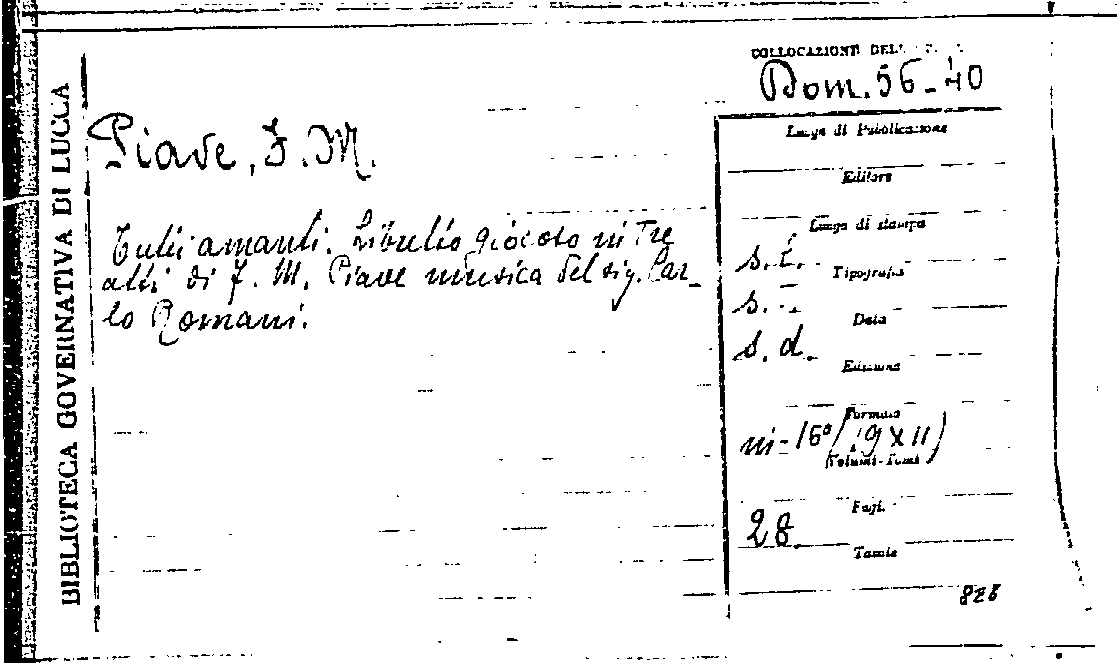 BIBLIOTECA GOVERNATIVA DI LUCCA
COLLOCAZIONE
Dom. 56-40
Piave, F. M.
Tutti amanti. Libretto giocoso in tre
atti di F. M. Piave musica del sig. Car-
lo Romani.
Luogo di Pubblicazione
Editore
Luogo di stampa
s.l.
Tipografia
s.
Data
s. d.
Edizione
Formato
in-16° (19 x 11)
(Volumi-Tomi
Pagi.
28.
Tavole